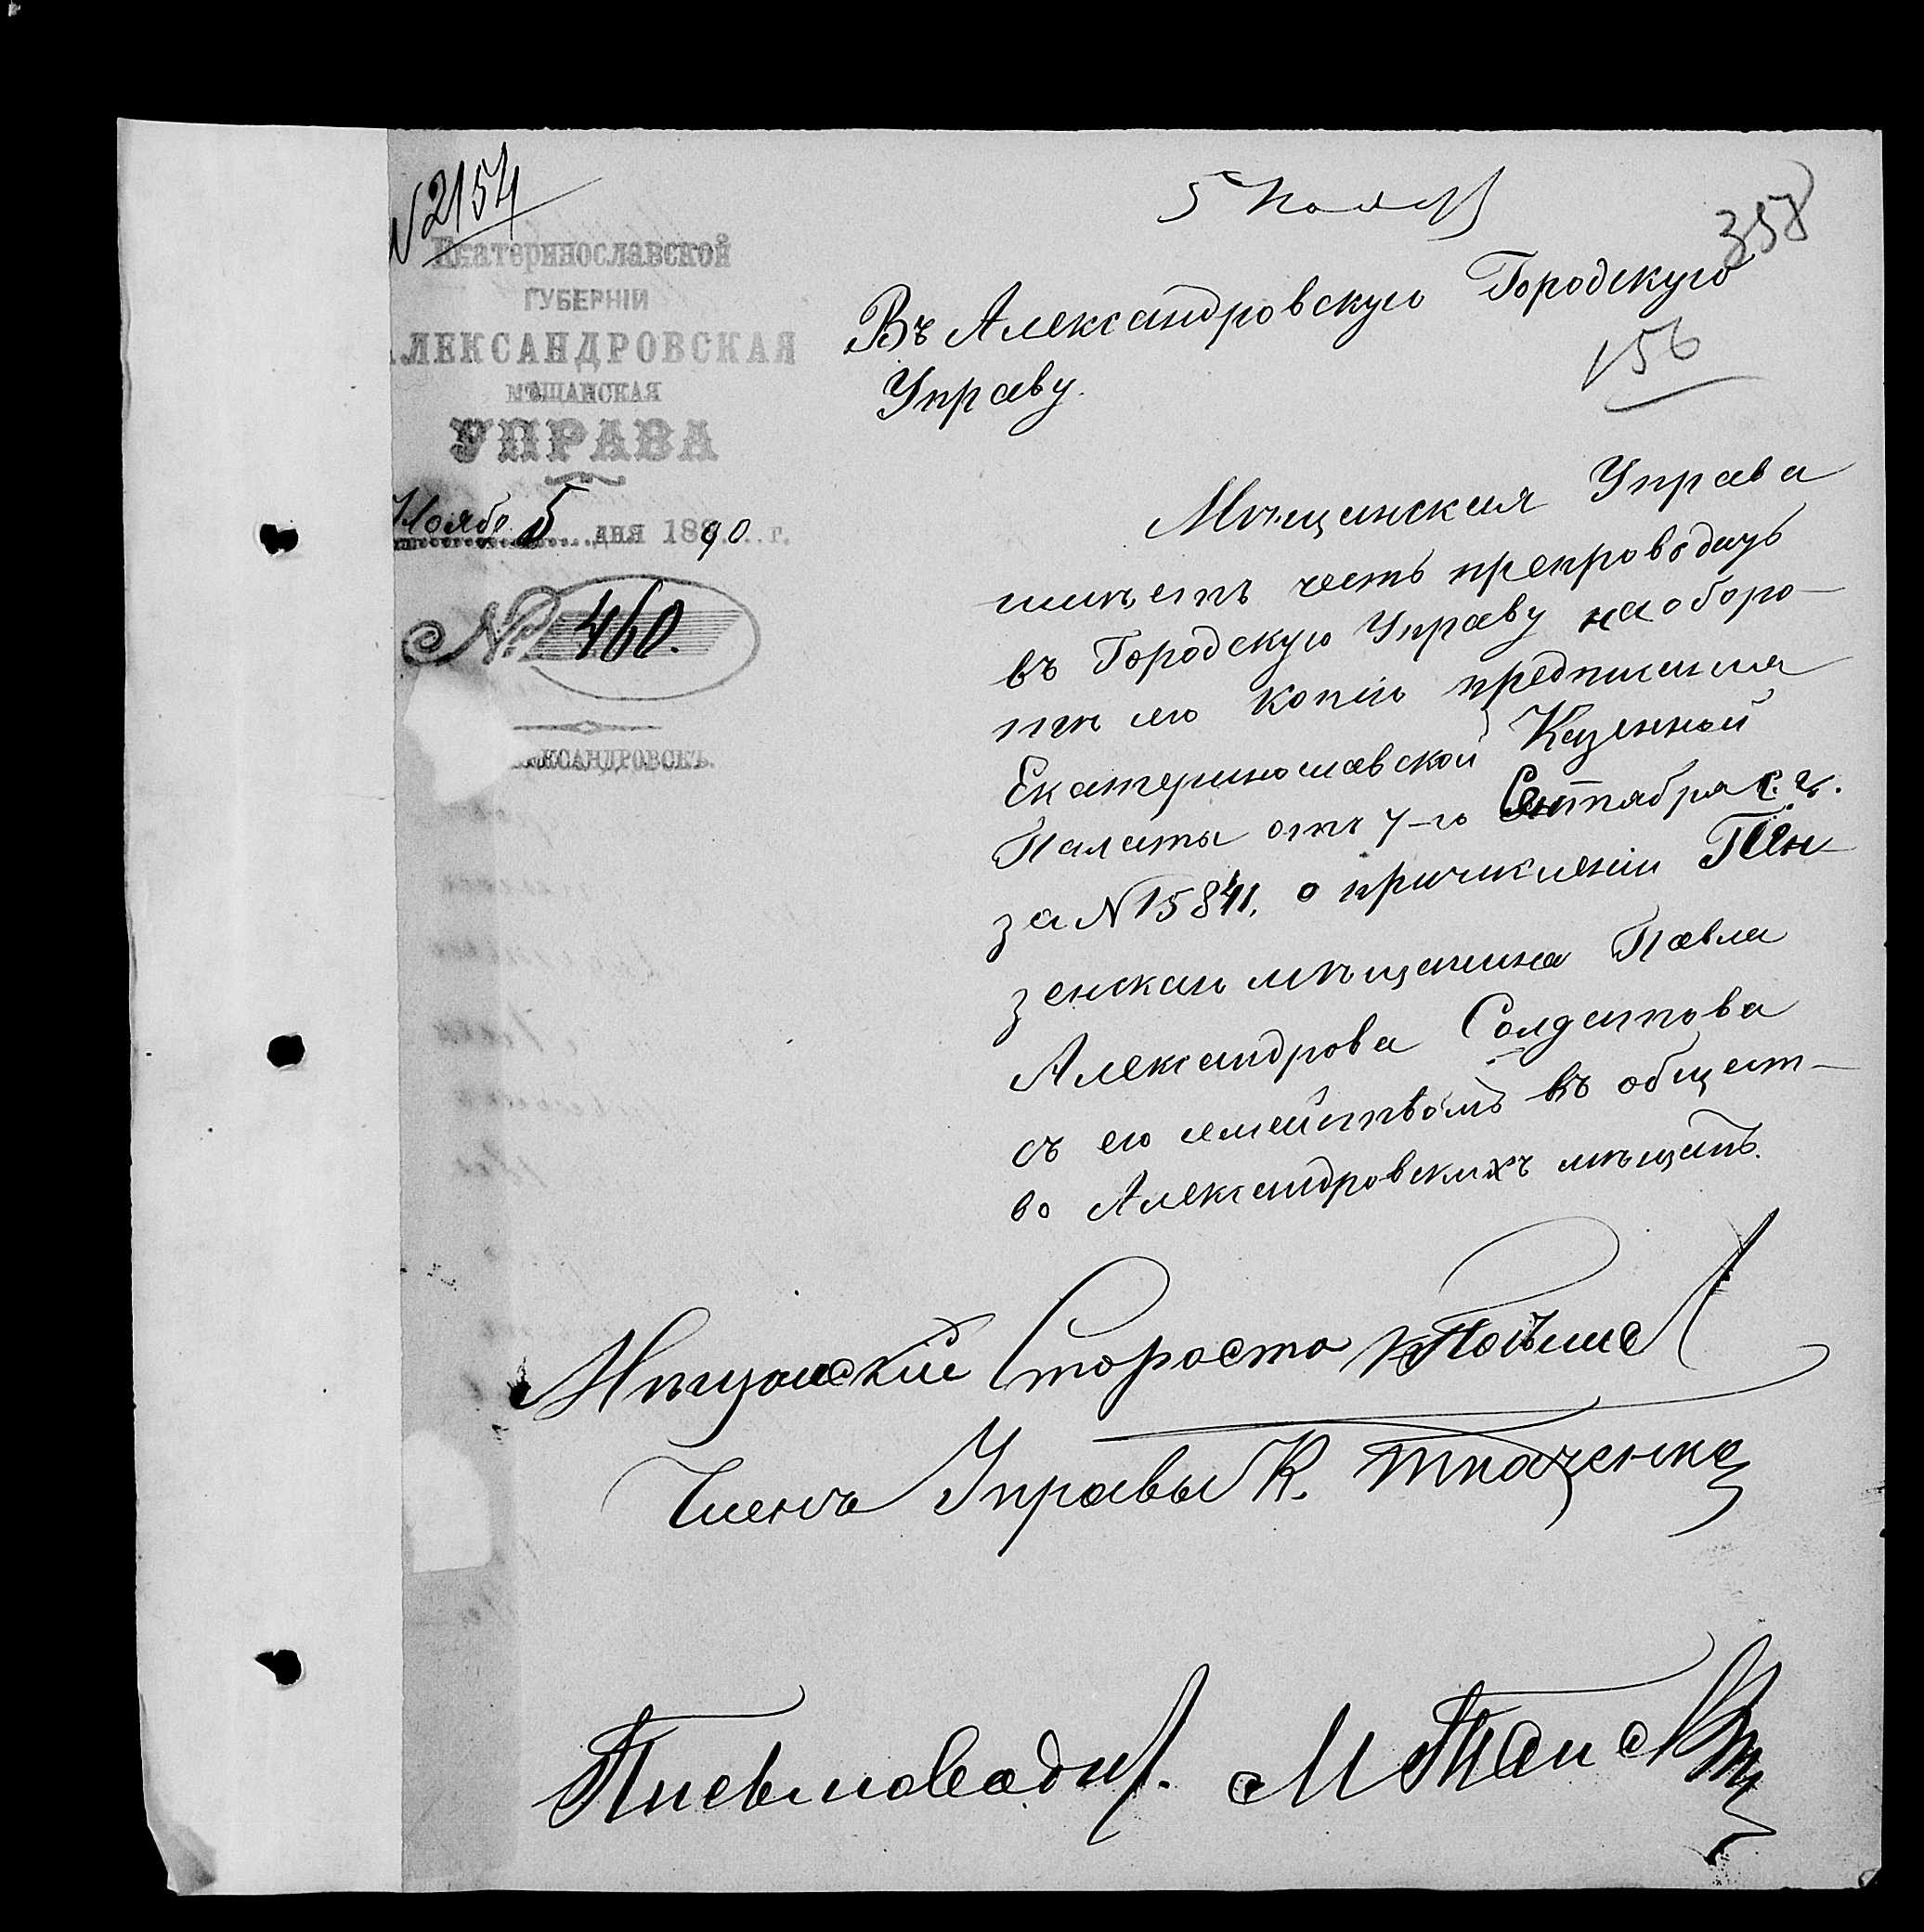 № 2154
5 Нояб
358
Екатеринославской
ГУБЕРНІИ
АЛЕКСАНДРОВСКАЯ
МѢЩАНСКАЯ
УПРАВА
Нояб. 5 дня 1890 г.
№ 460.
АЛЕКСАНДРОВСКЪ.
Въ Александровскую Городскую
Управу.
156
Мѣщанская Управа
имѣетъ честь препроводить
въ Городскую Управу на оборо-
тѣ сего копію предписания
Екатеринославской Казенной
Палаты отъ 7-го Сентября с. г.
за N 15841, о причислении Пен-
зенскаго мѣщанина Павла
Александрова Солдатова
съ его семействомъ въ общест-
во Александровскихъ мѣщанъ.
Мѣщанскій Староста
Членъ Управы К. Ткаченко
Писмоводит. М